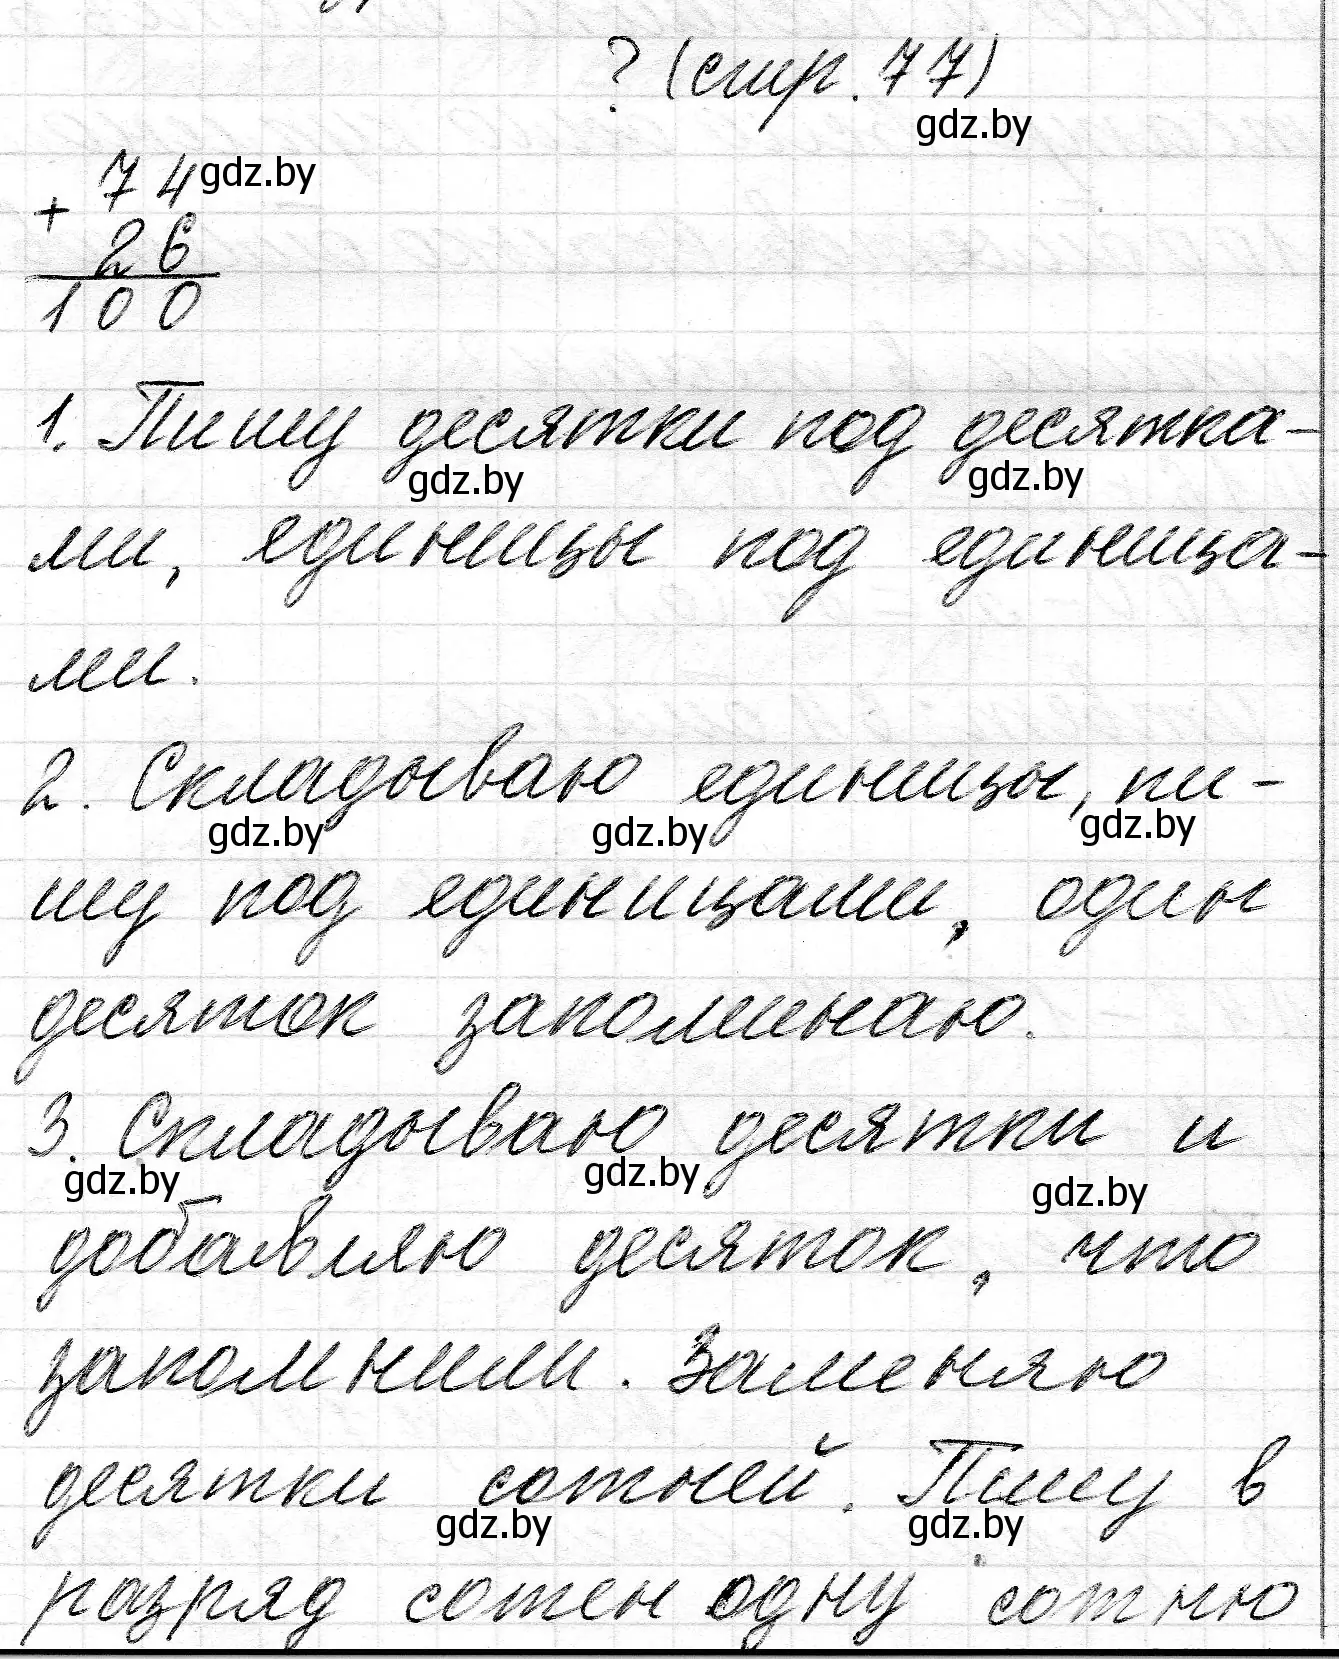 ? (стр. 77)
gdz.by
74 gdz.by
+
26
100
1. Пишу десятки под десятка-
gdz.by gdz.by
ми, единицы под единица-
ми.
2. Складываю единицы, пи-
gdz.by gdz.by gdz.by
шу под единицами, один
десяток запоминаю.
3. Складываю десятки и
gdz.by gdz.by gdz.by
добавляю десяток, что
запомнили. Заменяю
десятки сотней. Пишу в
gdz.by gdz.by
разряд сотен одну сотню